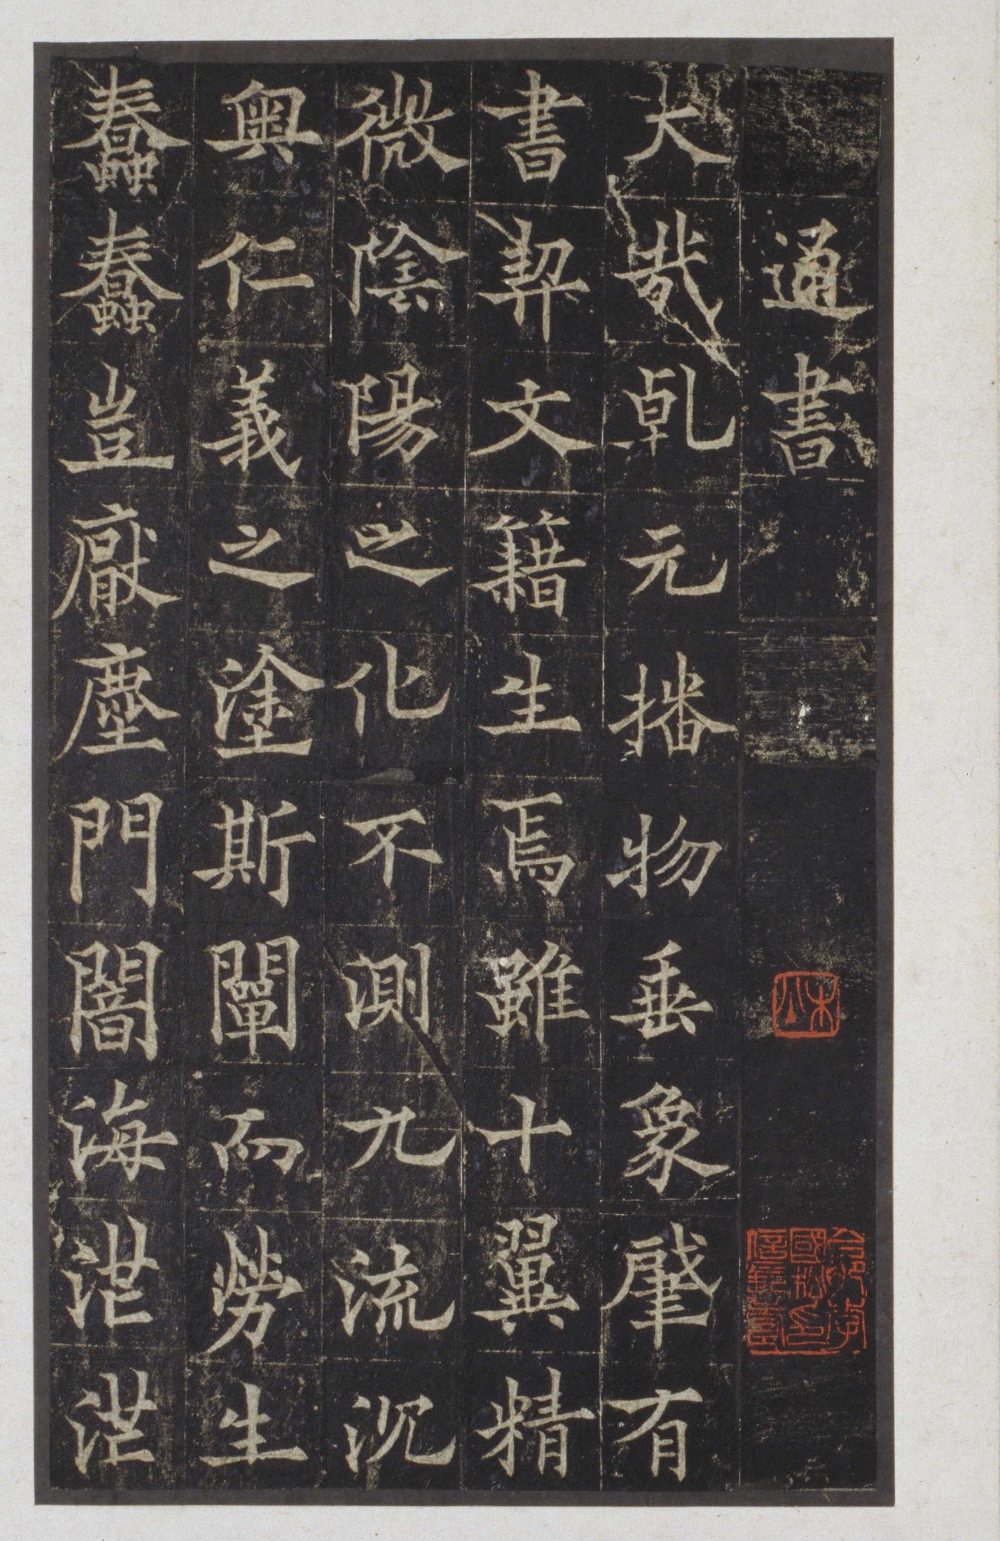 通書
大哉乾元播物垂象肇有
書契文籍生焉雖十翼精
微陰陽之化不測九流沉
奧仁義之塗斯闡而勞生
蠢蠢豈厭塵門闇海茫茫